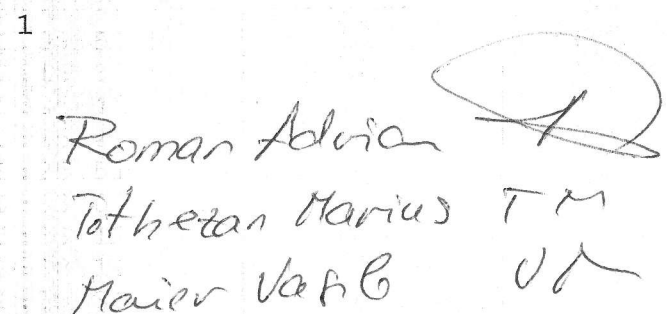 1
Roman Adrian
Tothezan Marius TM
Maier Vasile VM